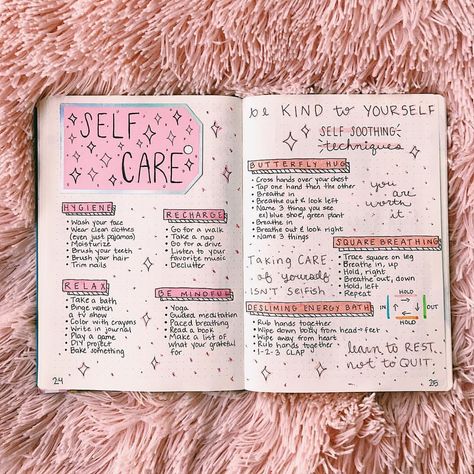 SELF
CARE
HYGIENE
• Wash your face
• Wear clean clothes
(even just pajamas)
• Moisturize
• Brush your teeth
• Brush your hair
• Trim nails
RELAX
• Take a bath
• Binge watch
a tv show
• Color with crayons
• Write in journal
• Play a game
• DIY project
• Bake something
RECHARGE
• Go for a walk
• Take a nap
• Go for a drive
• Listen to your
favorite music
• Declutter
BE MINDFUL
• Yoga
• Guided meditation
• Paced breathing
• Read a book
• Make a list of
what your grateful
for
24
be KIND to YOURSELF
SELF SOOTHING
techniques
BUTTERFLY HUG
• Cross hands over your chest
• Tap one hand then the other
• Breathe in
• Breathe out & look left
• Name 3 things you see
ex) blue shoe, green plant
• Breathe in
• Breathe out & look right
• Name 3 things
you
are
worth
it
SQUARE BREATHING
• Trace square on leg
• Breathe in, up
• Hold, right
• Breathe out, down
• Hold, left
• Repeat
HOLD
IN
OUT
HOLD
Taking CARE
of yourself
ISN'T SELFISH
DESLIMING ENERGY BATH
• Rub hands together
• Wipe down body from head → feet
• Wipe away from heart
• Rub hands together
• 1-2-3 CLAP
learn to REST,
not to QUIT.
25